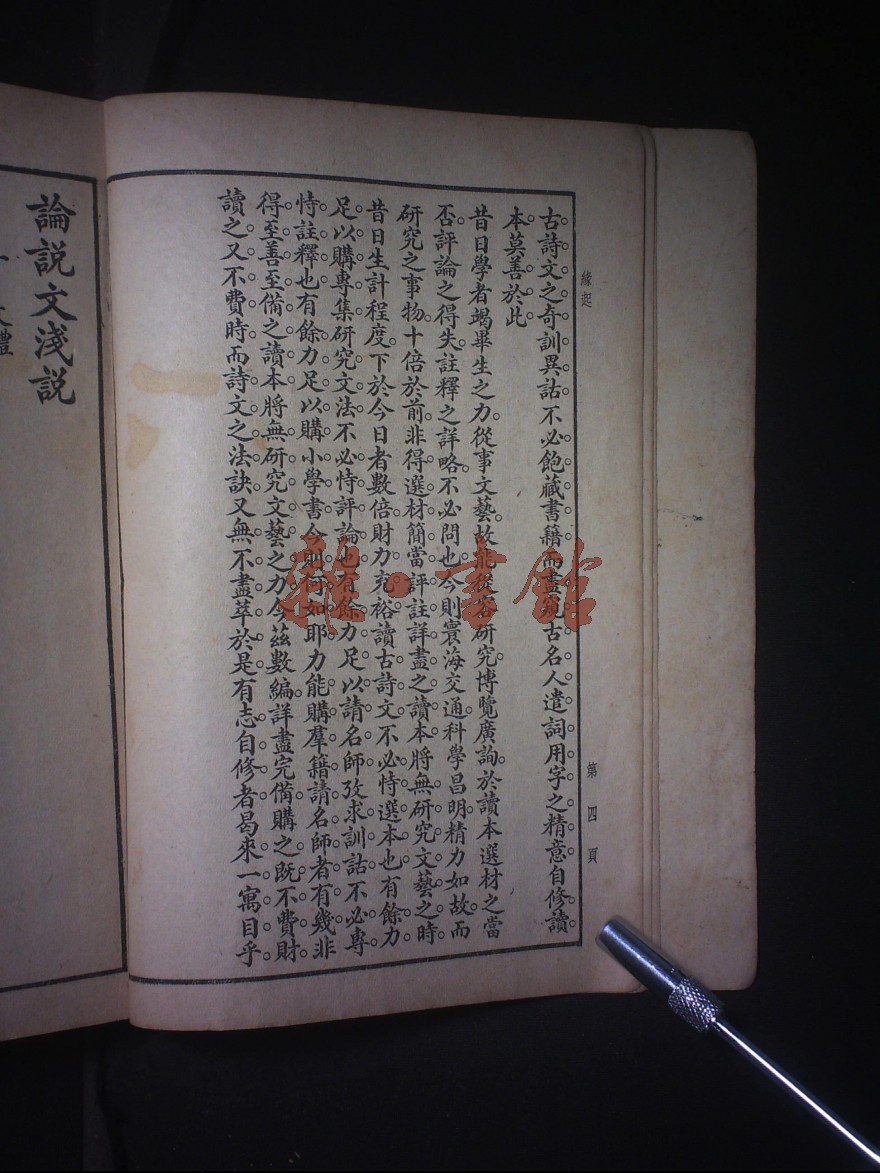 緣起
第四頁
古詩文之奇訓異詁。不必飽藏書籍。而盡窺古名人遣詞用字之精意。自修讀
本。莫善於此。
昔日學者竭畢生之力。從事文藝。故能從容研究。博覽廣詢。於讀本選材之當
否。評論之得失。註釋之詳略。不必問也。今則寰海交通。科學昌明。精力如故。而
研究之事物。十倍於前。非得選材簡當評註詳盡之讀本。將無研究文藝之時。
昔日生計程度。下於今日者數倍。財力充裕。讀古詩文。不必恃選本也。有餘力
足以購專集。研究文法。不必恃評論也。有餘力足以請名師。攷求訓詁。不必專
恃註釋也。有餘力足以購小學書。今則何如耶。力能購羣籍請名師者有幾。非
得至善至備之讀本。將無研究文藝之力。今茲數編。詳盡完備。購之既不費財。
讀之又不費時。而詩文之法訣。又無不盡萃於是。有志自修者。曷來一寓目乎。
論説文淺説
雜·書館